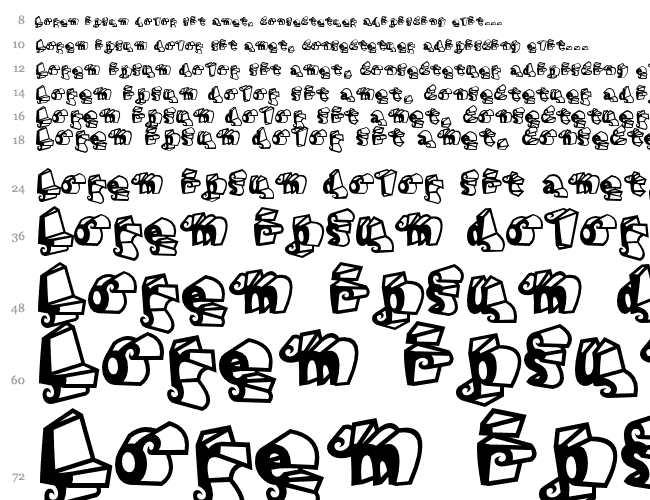 8 Lorem ipsum dolor sit amet, consectetuer adipiscing elit...
10 Lorem ipsum dolor sit amet, consectetuer adipiscing elit...
12 Lorem ipsum dolor sit amet, consectetuer adipiscing
14 Lorem ipsum dolor sit amet, consectetuer
16 Lorem ipsum dolor sit amet, consectetuer
18 Lorem ipsum dolor sit amet,
24 Lorem ipsum dolor sit amet,
36 Lorem ipsum dolor
48 Lorem ipsum d
60 Lorem ipsu
72 Lorem ip